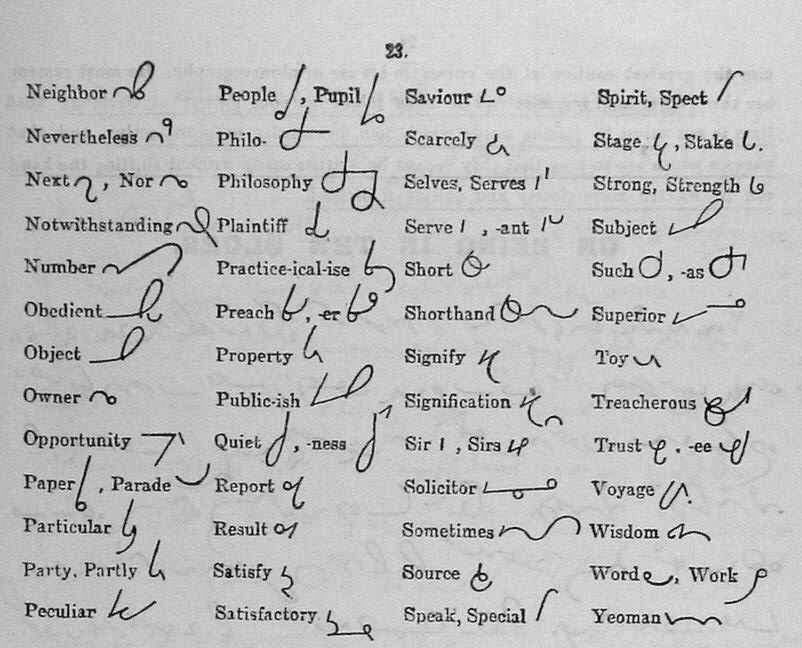 23.
Neighbor
Nevertheless
Next , Nor
Notwithstanding
Number
Obedient
Object
Owner
Opportunity
Paper , Parade
Particular
Party, Partly
Peculiar
People , Pupil
Philo-
Philosophy
Plaintiff
Practice-ical-ise
Preach , -er
Property
Public-ish
Quiet , -ness
Report
Result
Satisfy
Satisfactory
Saviour
Scarcely
Selves, Serves
Serve , -ant
Short
Shorthand
Signify
Signification
Sir , Sirs
Solicitor
Sometimes
Source
Speak, Special
Spirit, Spect
Stage , Stake .
Strong, Strength
Subject
Such , -as
Superior
Toy
Treacherous
Trust . -ee
Voyage
Wisdom
Word , Work
Yeoman